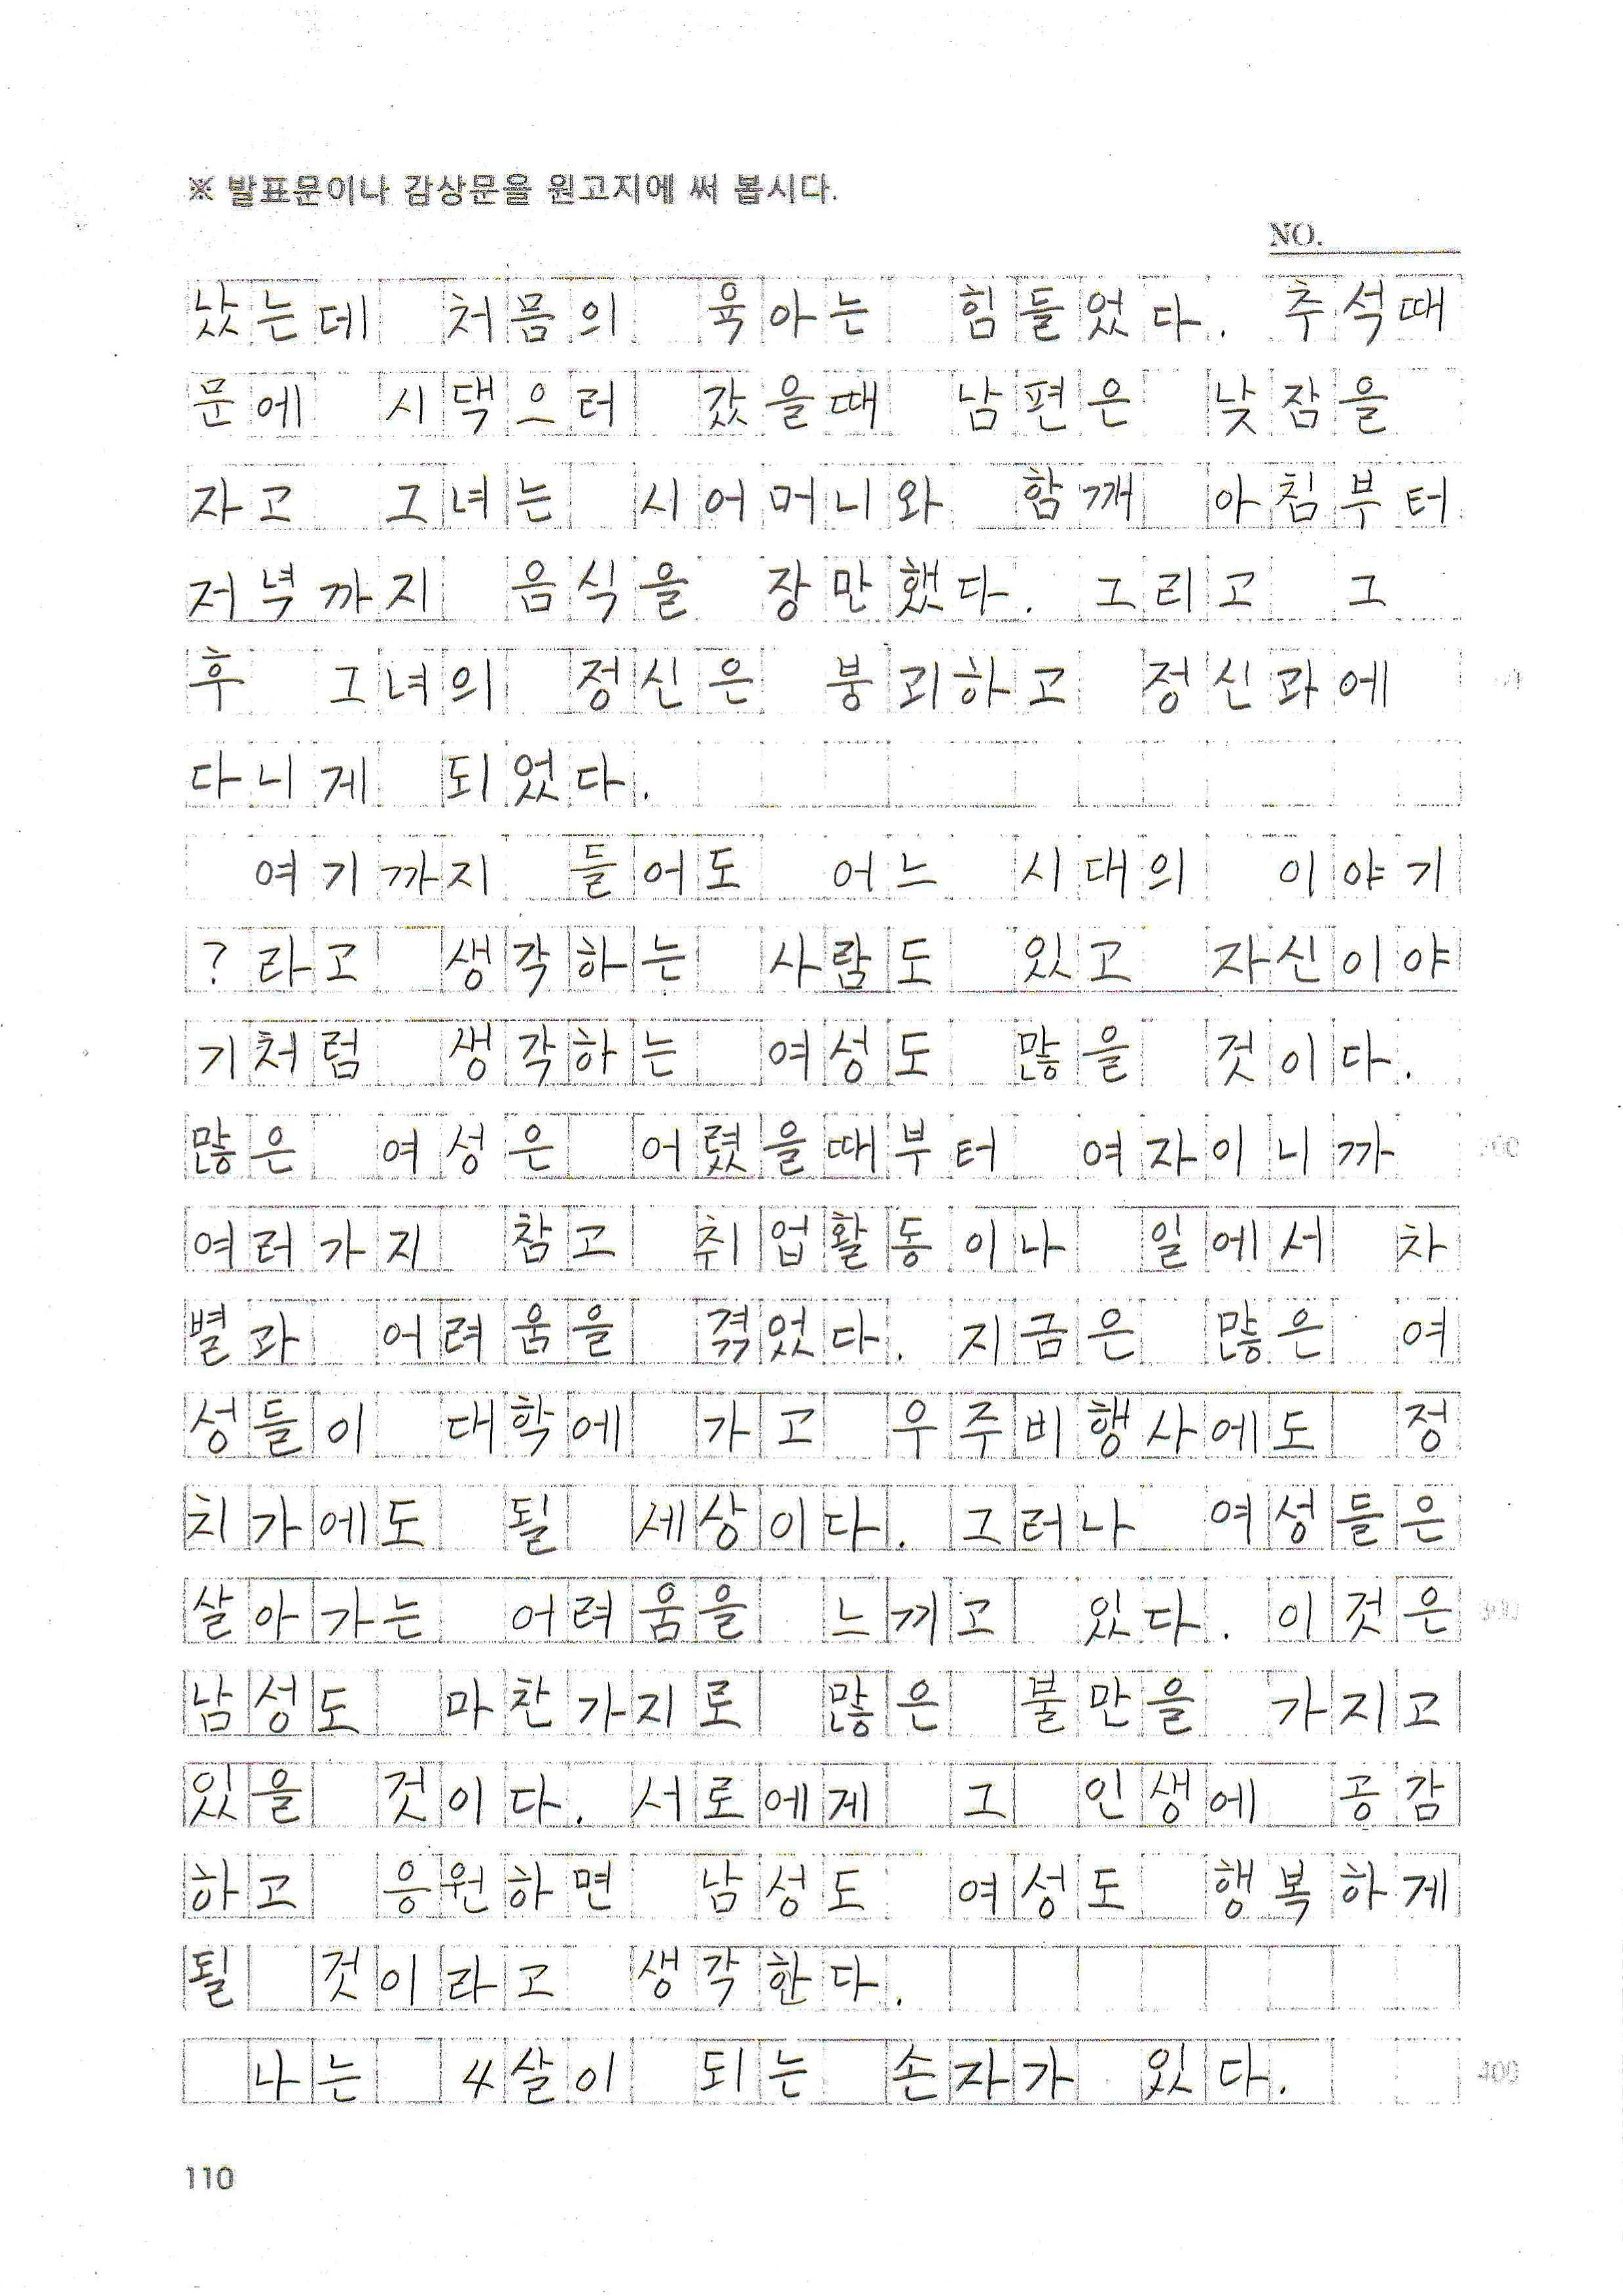 ※ 발표문이나 감상문을 원고지에 써 봅시다.
NO.
났는데 처믐의 육아는 힘들었다. 추석때
문에 시댁으러 갔을때 남편은 낮잠을
자고 그녀는 시어머니와 함깨 아침부터
저녁까지 음식을 장만했다. 그리고 그
후 그녀의 정신은 붕괴하고 정신과에
다니게 되었다.
여기까지 들어도 어느 시대의 이야기
?라고 생각하는 사람도 있고 자신이야
기처럼 생각하는 여성도 많을 것이다.
많은 여성은 어렸을때부터 여자이니까
여러가지 참고 취업활동이나 일에서 차
별과 어려움을 겪었다. 지금은 많은 여
성들이 대학에 가고 우주비행사에도 정
치가에도 될 세상이다. 그러나 여성들은
살아가는 어려움을 느끼고 있다. 이것은
남성도 마찬가지로 많은 불만을 가지고
있을 것이다. 서로에게 그 인생에 공감
하고 응원하면 남성도 여성도 행복하게
될 것이라고 생각한다.
나는 4살이 되는 손자가 있다.
400
110